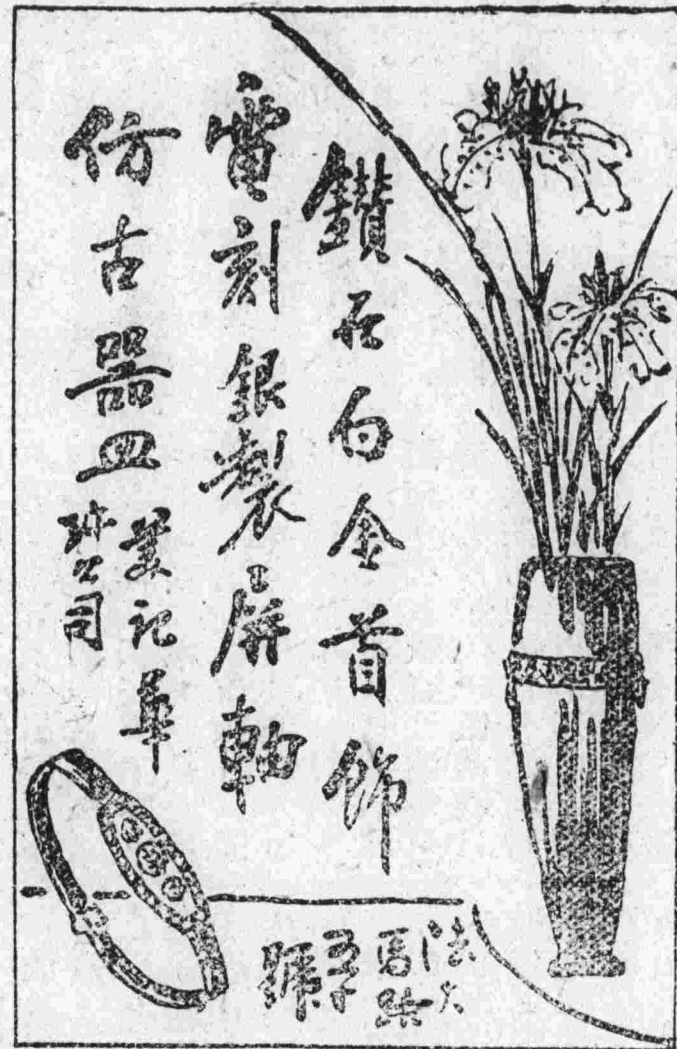 鑽石白金首飾
電刻銀製屏軸
仿古器皿
美記華
珠公司
法大
馬路